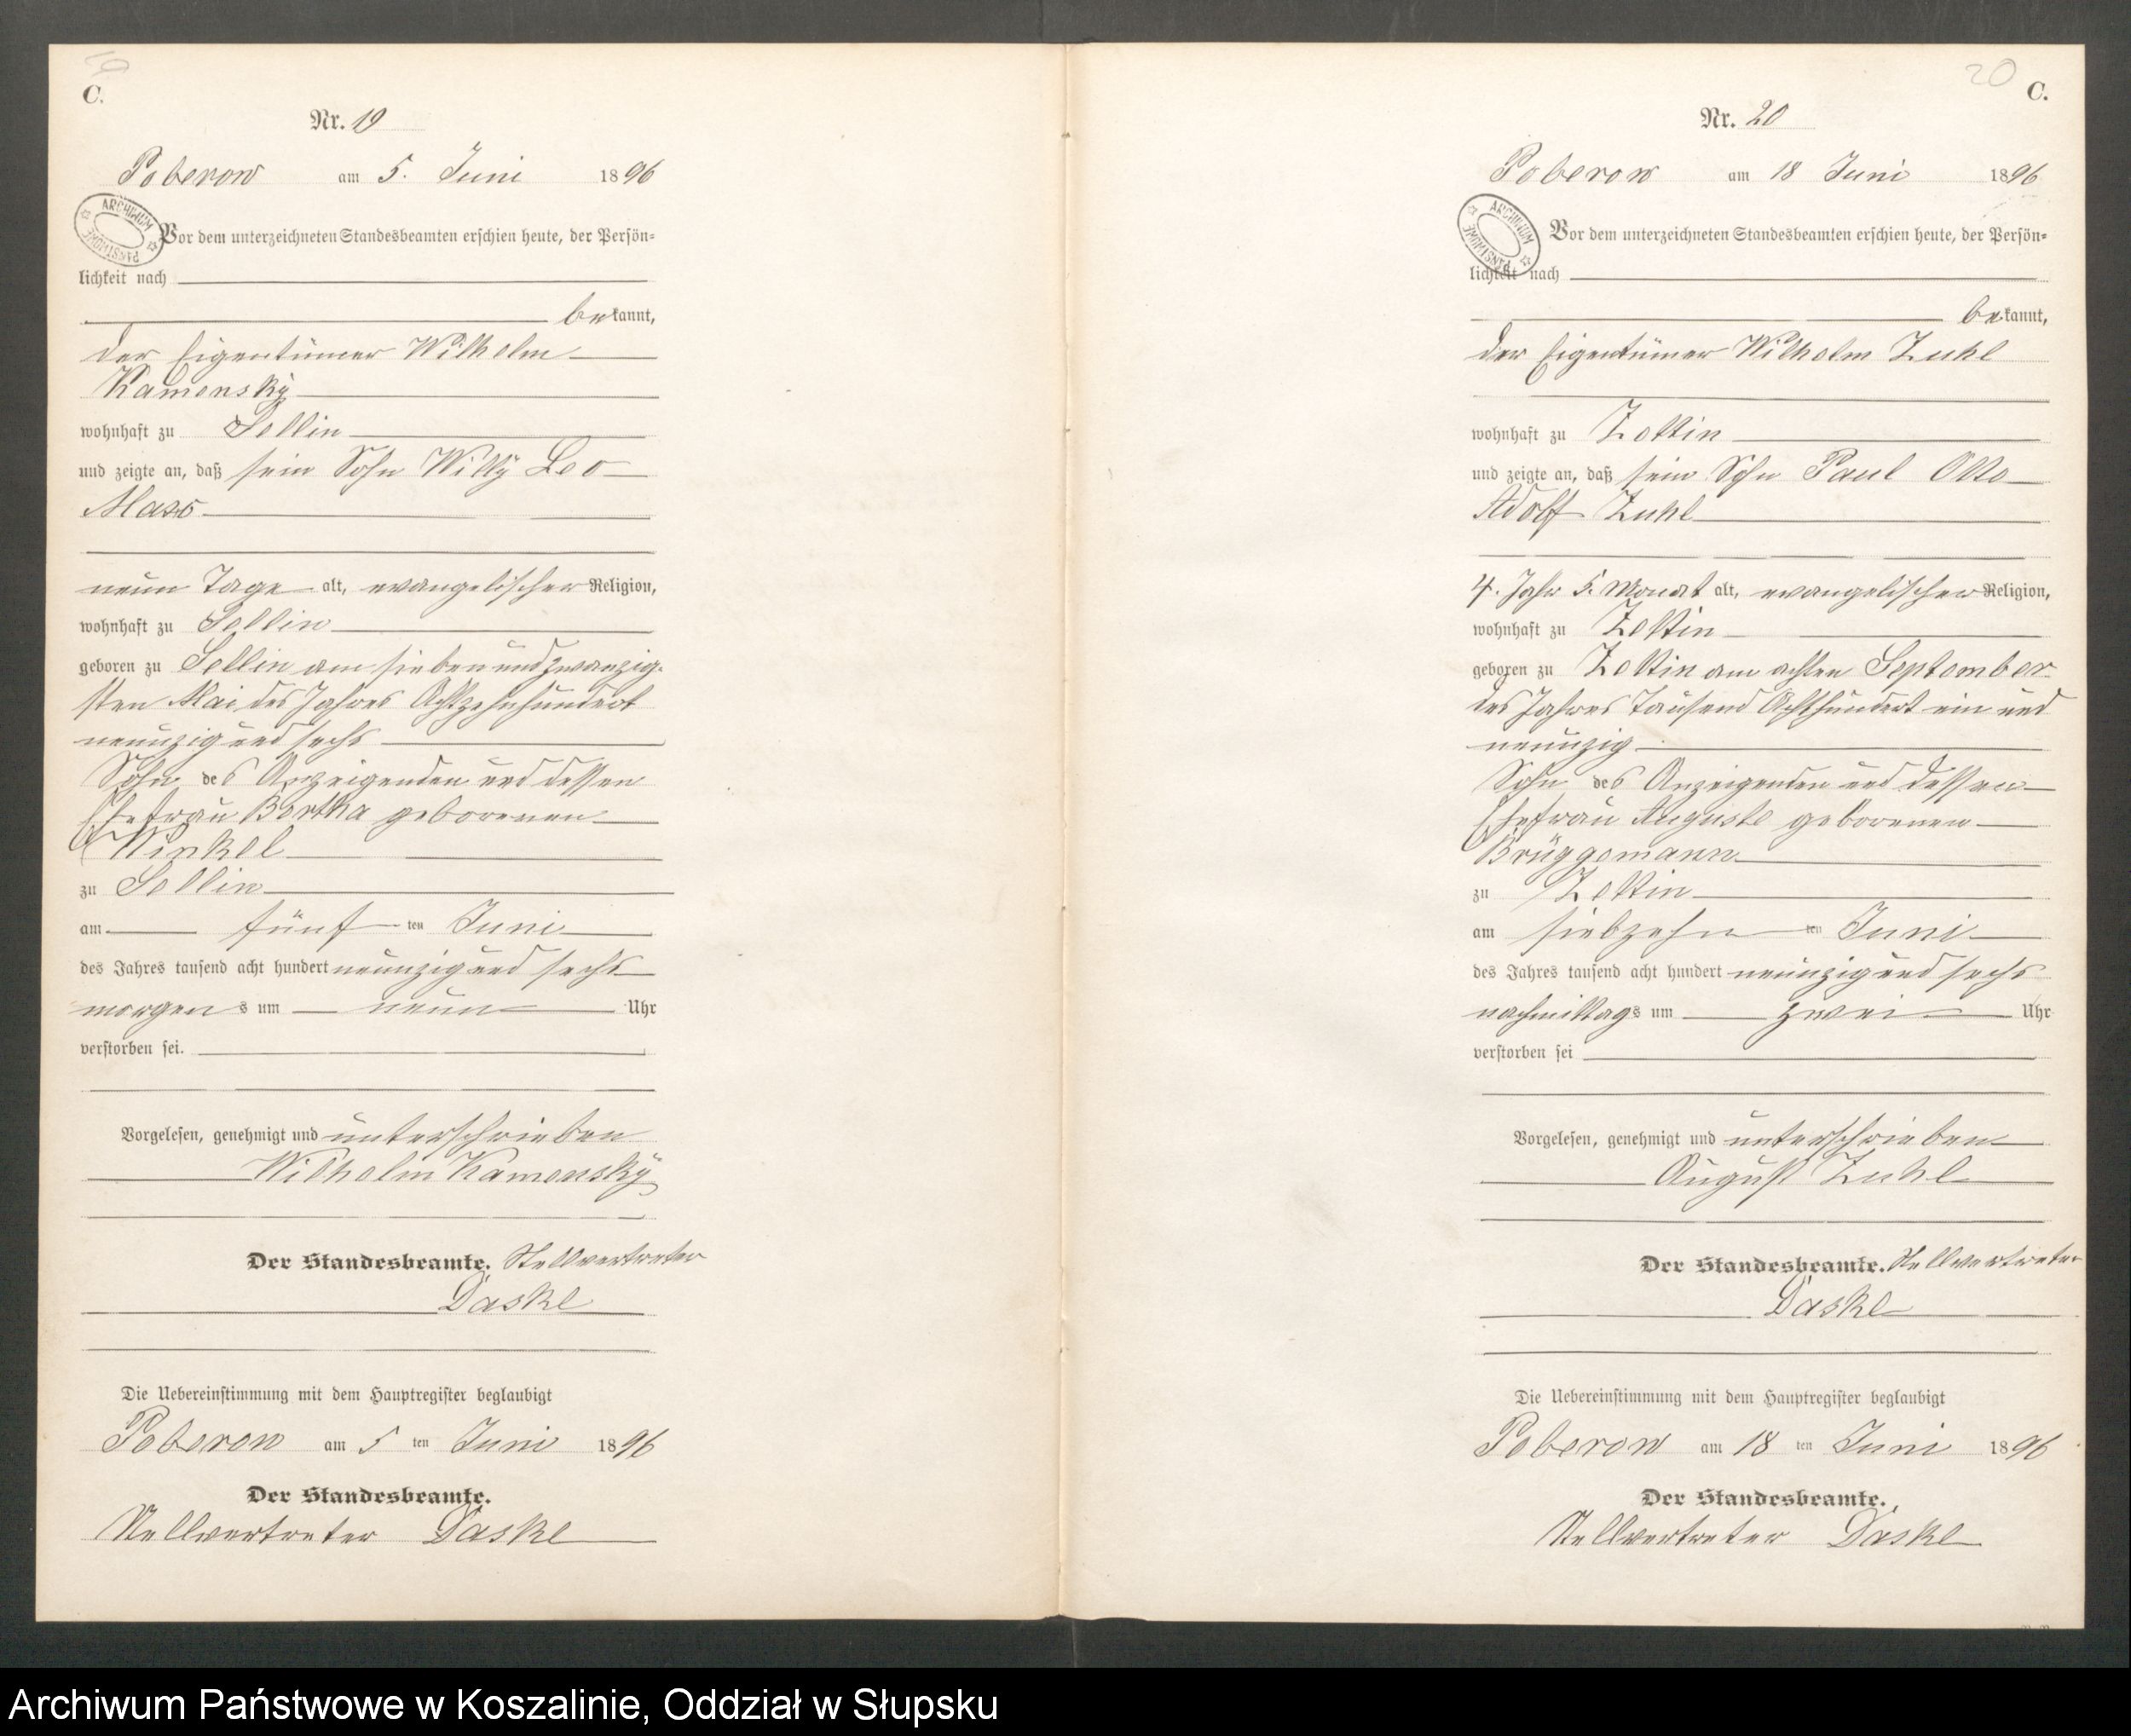 19
C.
Nr. 19
Poberow am 5. Juni 1896
Vor dem unterzeichneten Standesbeamten erschien heute, der Persön-
lichkeit nach
bekannt,
der Eigentümer Wilhelm
Kamensky
wohnhaft zu Sellin
und zeigte an, daß sein Sohn Willy Leo
Max
neun Tage alt, evangelischer Religion,
wohnhaft zu Sellin
geboren zu Sellin am sieben und zwanzig-
sten Mai des Jahres Achtzehnhundert
neunzig und sechs
Sohn des Anzeigenden und dessen
Ehefrau Bertha geborenen
Winkel
zu Sellin
am fünften Juni
des Jahres tausend acht hundert neunzig und sechs
morgens um neun Uhr
verstorben sei.
Vorgelesen, genehmigt und unterschrieben
Wilhelm Kamensky
Der Standesbeamte. Stellvertreter
Daske
Die Uebereinstimmung mit dem Hauptregister beglaubigt
Poberow am 5 ten Juni 1896
Der Standesbeamte.
Stellvertreter Daske
ARCHIWUM PAŃSTWOWE
20
C.
Nr. 20
Poberow am 18 Juni 1896
Vor dem unterzeichneten Standesbeamten erschien heute, der Persön-
lichkeit nach
bekannt,
der Eigentümer Wilhelm Zuhl
wohnhaft zu Zettin
und zeigte an, daß sein Sohn Paul Otto
Adolf Zuhl
4. Jahr 5. Monat alt, evangelischer Religion,
wohnhaft zu Zettin
geboren zu Zettin am achten September
des Jahres Tausend Achthundert ein und
neunzig
Sohn des Anzeigenden und dessen
Ehefrau Auguste geborenen
Brüggemann
zu Zettin
am siebzehn ten Juni
des Jahres tausend acht hundert neunzig und sechs
nachmittags um zwei Uhr
verstorben sei
Vorgelesen, genehmigt und unterschrieben
August Zuhl
Der Standesbeamte. Stellvertreter
Daske
Die Uebereinstimmung mit dem Hauptregister beglaubigt
Poberow am 18 ten Juni 1896
Der Standesbeamte.
Stellvertreter Daske
ARCHIWUM PAŃSTWOWE
Archiwum Państwowe w Koszalinie, Oddział w Słupsku